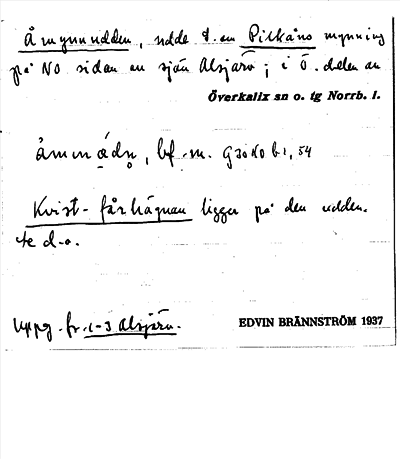 Åmynnudden, udde t. en Pilkåns mynning
på NO sidan en sjön Alsjärv; i Ö. delen av
Överkalix sn o. tg Norrb. l.
bf. m. G30 NO b1, 54
Kvist-fårhägnan ligger på den udden.
te d-o.
Uppg. fr. 1-3 Alsjärv.
EDVIN BRÄNNSTRÖM 1937